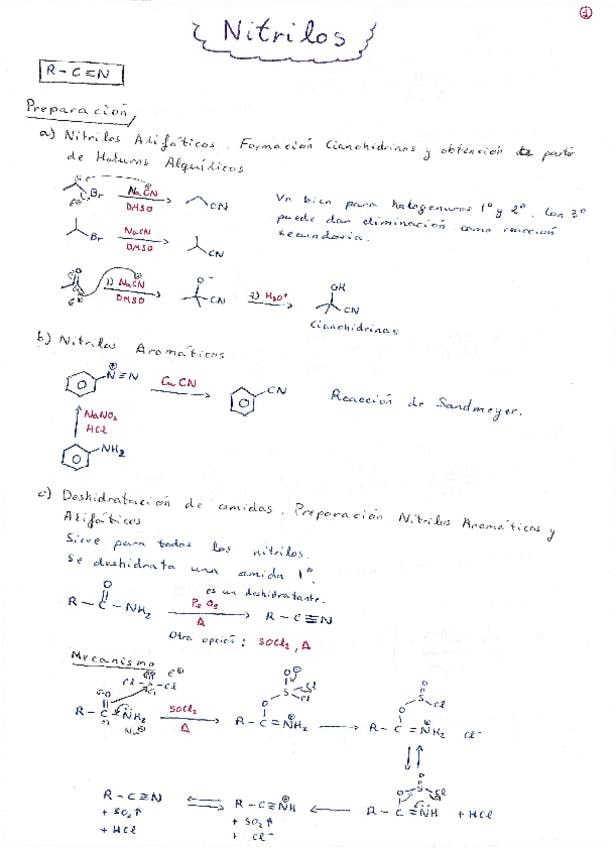 ①
Nitrilos
R-C≡N
Preparación
a) Nitrilos Alifáticos. Formación Cianohidrinas y obtención partir
de Haluros Alquílicos
Br NaCN DMSO CN
Va bien para halogenuros 1º y 2º. Con 3º
puede dar eliminación como reacción
secundaria.
Br NaCN DMSO CN
O 1) NaCN DMSO O⁻ CN 2) H₃O⁺ OH CN
Cianohidrinas
b) Nitrilos Aromáticos
N≡N CuCN CN
Reacción de Sandmeyer.
NaNO₂
HCl
NH₂
c) Deshidratación de amidas. Preparación Nitrilos Aromáticos y
Alifáticos
Sirve para todos los nitrilos.
Se deshidrata una amida 1º.
es un deshidratante.
R-C-NH₂ O P₂O₅ Δ R-C≡N
Otra opción: SOCl₂, Δ
Mecanismo
Cl-S-Cl
R-C-NH₂ SOCl₂ Δ R-C=NH₂ R-C=NH₂ Cl⁻
R-C≡N R-C≡NH R-C=NH + HCl
+ SO₂↑ + SO₂↑
+ HCl + Cl⁻